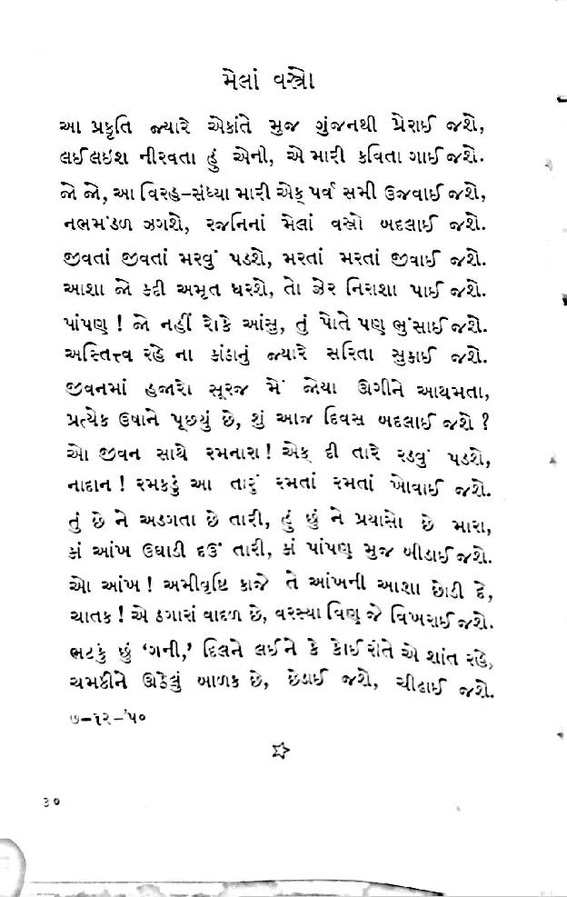 મેલાં વસ્ત્રો
આ પ્રકૃતિ જ્યારે એકાંતે મુજ ગુંજનથી પ્રેરાઈ જશે,
લઈ લઇશ નીરવતા હું એની, એ મારી કવિતા ગાઈ જશે.
જો જો, આ વિરહ–સંધ્યા મારી એક પર્વ સમી ઉજવાઈ જશે,
નભમંડળ ઝગશે, રજનિનાં મેલાં વસ્ત્રો બદલાઈ જશે.
જીવતાં જીવતાં મરવું પડશે, મરતાં મરતાં જીવાઈ જશે.
આશા જો કદી અમૃત ધરશે, તો ઝેર નિરાશા પાઈ જશે.
પાંપણ ! જો નહીં રોકે આંસુ, તું પોતે પણ ભુંસાઈ જશે.
અસ્તિત્ત્વ રહે ના કાંઠાનું જ્યારે સરિતા સુકાઈ જશે.
જીવનમાં હજારો સૂરજ મેં જોયા ઊગીને આથમતા,
પ્રત્યેક ઉષાને પૂછયું છે, શું આજ દિવસ બદલાઈ જશે ?
ઓ જીવન સાથે રમનારા ! એક દી તારે રડવું પડશે,
નાદાન ! રમકડું આ તારું રમતાં રમતાં ખોવાઈ જશે.
તું છે ને અડગતા છે તારી, હું છું ને પ્રયાસો છે મારા,
કાં આંખ ઉઘાડી દઉં તારી, કાં પાંપણ મુજ બીડાઈ જશે.
ઓ આંખ ! અમીવૃષ્ટિ કાજે તે આંખની આશા છોડી દે,
ચાતક ! એ ઠગારાં વાદળ છે, વરસ્યા વિણ જે વિખરાઈ જશે.
ભટકું છું ‘ગની,’ દિલને લઈને કે કોઈ રીતે એ શાંત રહે,
ચમકીને ઊઠેલું બાળક છે, છેડાઈ જશે, ચીઢાઈ જશે.
૭–૧૨–’૫૦
૩૦